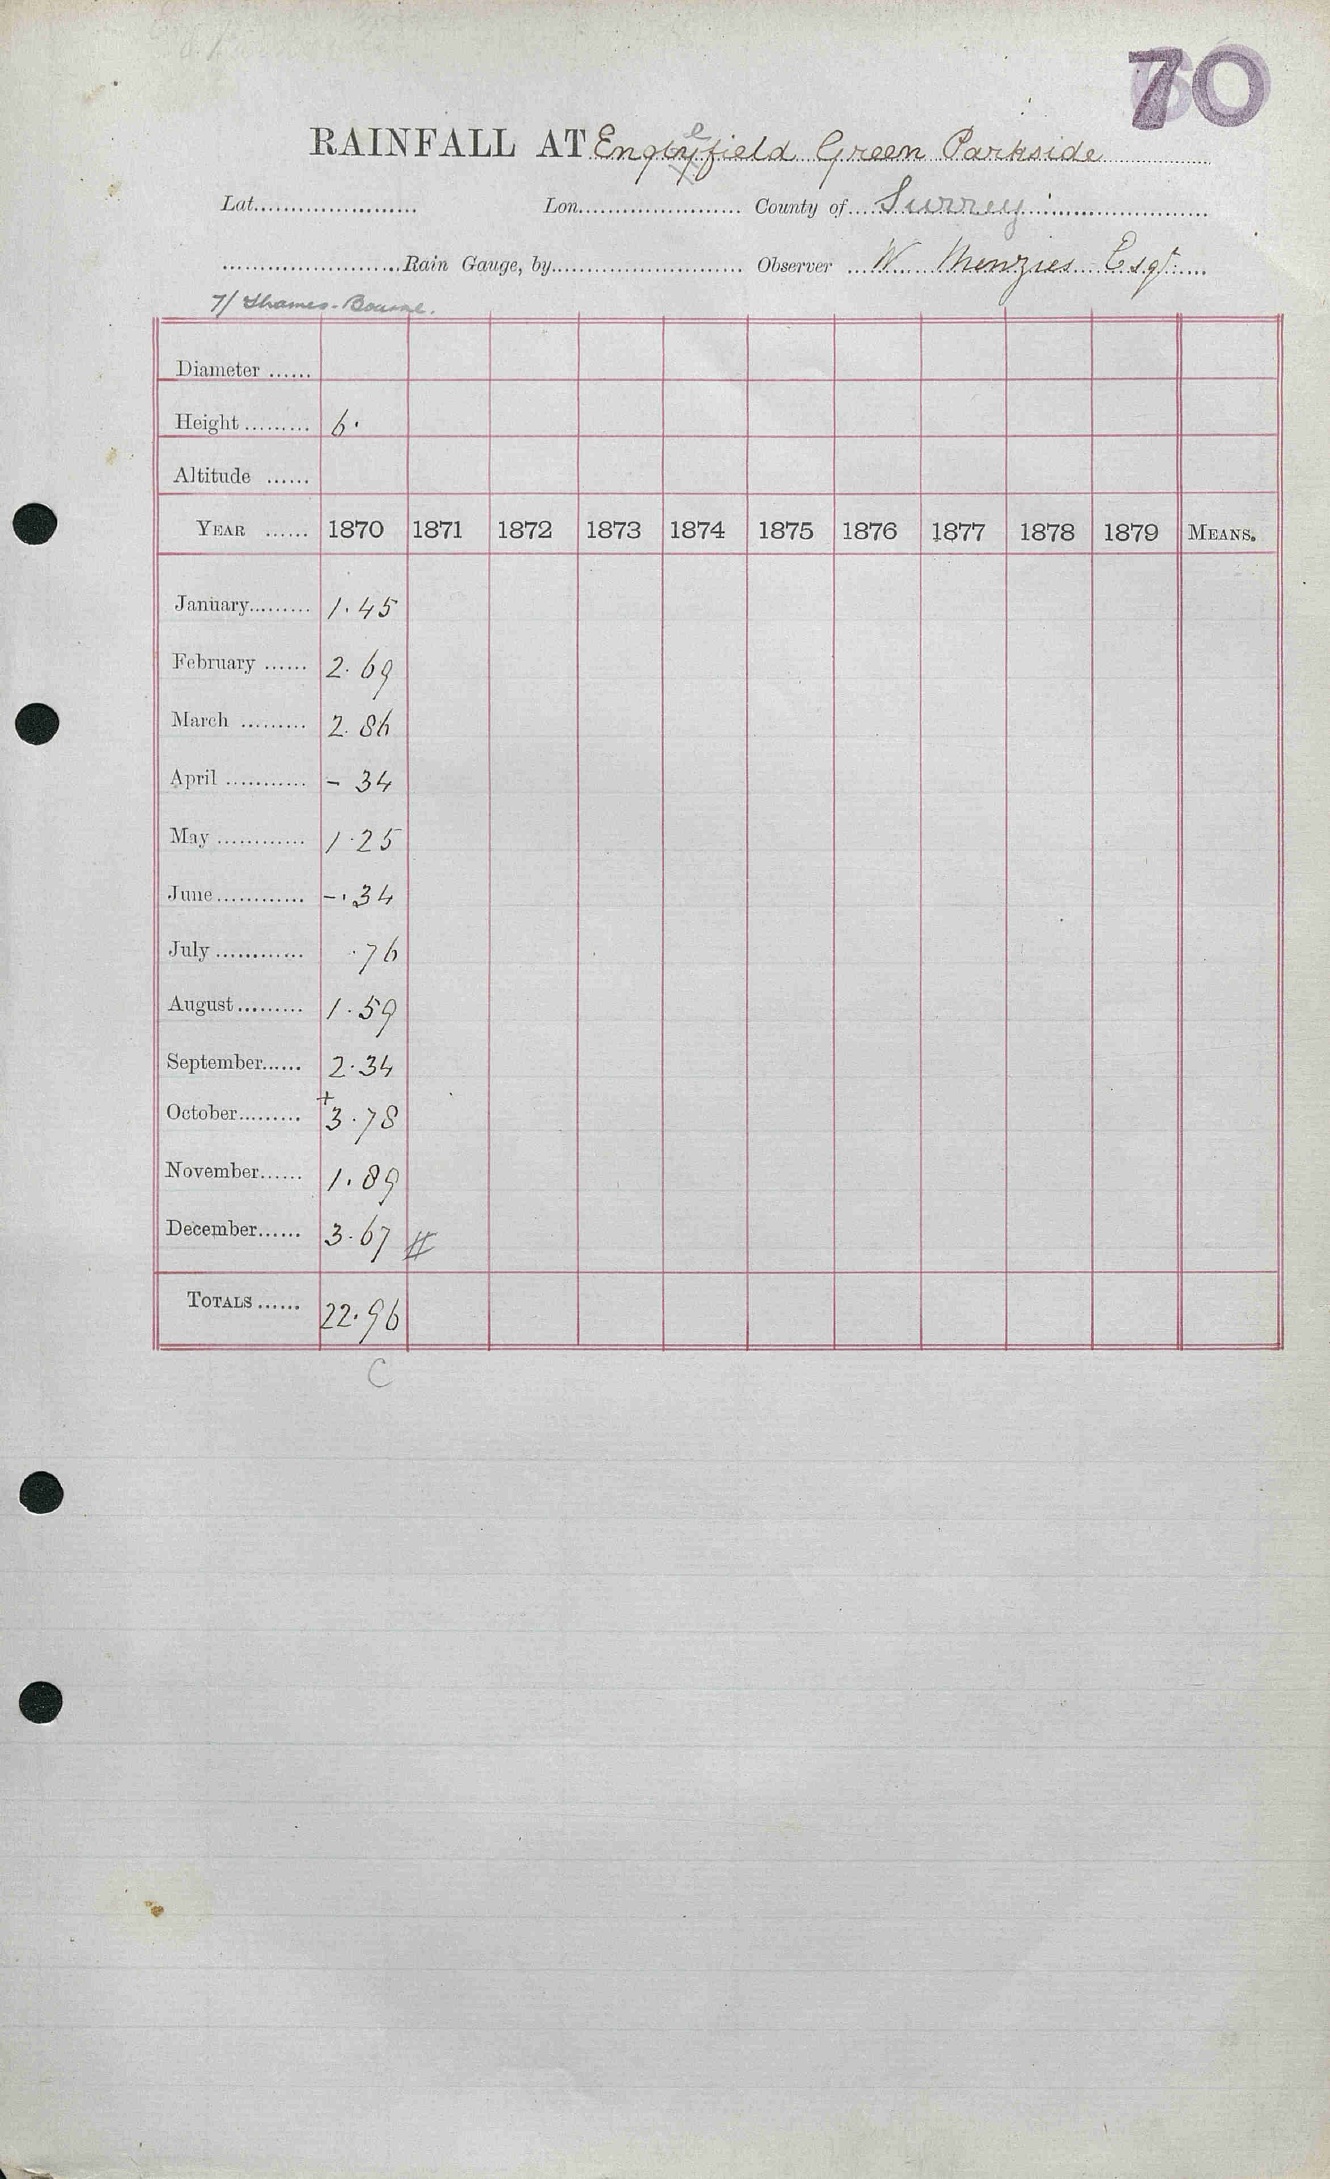 70
RAINFALL AT Englefield Green Parkside
Lat...................... Lon....................... County of....Surrey......................
........................Rain Gauge, by.......................... Observer ...W. Menzies Esqr.....
7/ Thames-Bourne.
Diameter ......
Height ......... 6.
Altitude ......
YEAR ...... 1870 1871 1872 1873 1874 1875 1876 1877 1878 1879 MEANS.
January......... 1.45
February ...... 2.69
March ......... 2.86
April ............ - 34
May ............ 1.25
June............ -.34
July ............ .76
August......... 1.59
September...... 2.34
October......... +3.78
November...... 1.89
December...... 3.67 #
TOTALS ...... 22.96
C